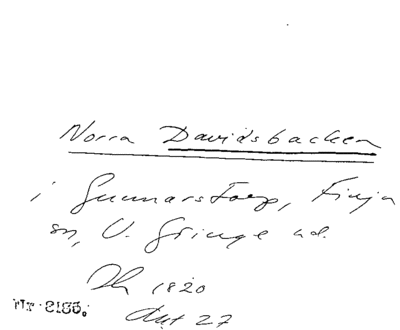 Norra Davidsbacken
i Gunnarstorp, Finja
sn, V. Göinge hd.
1820
Akt 27
Nr 8185.